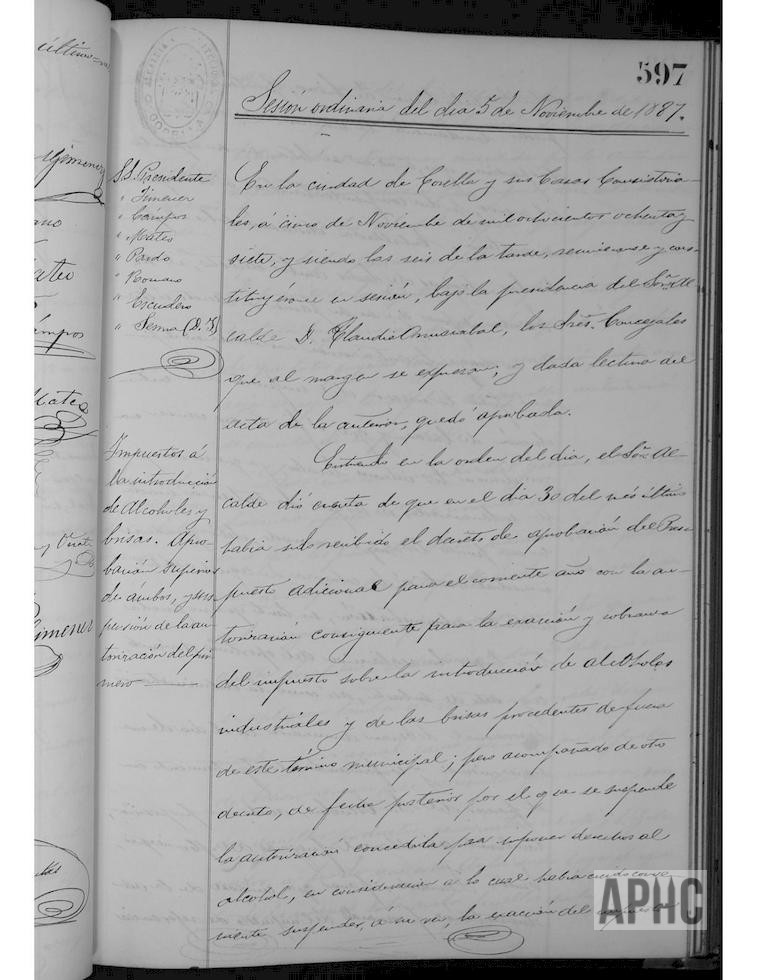 597
Sesión ordinaria del dia 5 de Noviembre de 1887.
S.S. Presidente
" Jimenez
" Campos
" Mateo
" Pardo
" Romano
" Escudero
" Sesma (D. F)
En la ciudad de Corella y sus Casas Consistoria-
les, á cinco de Noviembre de mil ochocientos ochenta y
siete, y siendo las seis de la tarde, reunieronse y cons-
tituyéronse en sesión, bajo la presidencia del Sor. Al-
calde D. Claudio Amusrabal, los Sres. Concejales
que al margen se expresan, y dada lectura del
acta de la anterior, quedó aprobada.
Impuestos á
la introducción
de Alcoholes y
brisas. Apro-
bación superior
de ámbos, y sus-
pensión de la au-
torización del pri-
mero
Entrando en la orden del dia, el Sor. Al-
calde dió cuenta de que en el dia 30 del mes último
habia sido recibido el decreto de aprobación del Presu-
puesto adicional para el corriente año con la au-
torización consiguiente para la exacción y cobranza
del impuesto sobre la introducción de alcoholes
industriales y de las brisas procedentes de fuera
de este término municipal; pero acompañado de otro
decreto, de fecha posterior por el que se suspende
la autorización concedida para imponer derechos al
alcohol, en consideración á lo cual habia creido conve-
niente suspender, á su vez, la exacción del impuesto
último
Jimenez
Mateo
Campos
Mateo
Jimenez
APHC